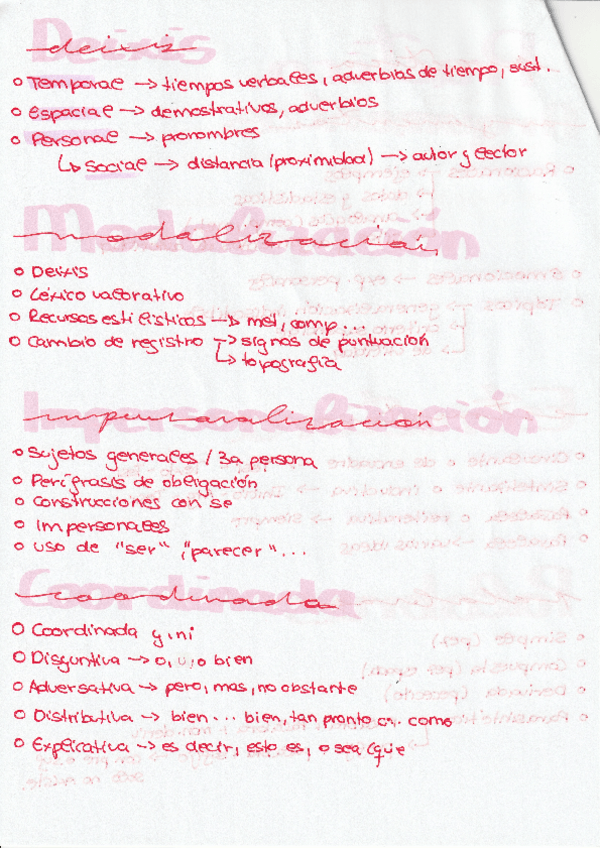 Deixis
Temporal → tiempos verbales, adverbios de tiempo, sust.
espacial → demostrativos, adverbios
Personal → pronombres
↳ social → distancia (proximidad) → autor y lector
Modalización
Deixis
Léxico valorativo
Recursos estilísticos → met, comp...
Cambio de registro → signos de puntuación
↳ topografía
Impersonalización
Sujetos generales / 3a persona
Perífrasis de obligación
Construcciones con se
Impersonales
uso de "ser", "parecer"...
Coordinada
Coordinada y, ni
Disyuntiva → o, u, o bien
Adversativa → pero, mas, no obstante
Distributiva → bien... bien, tan pronto como
Explicativa → es decir, esto es, o sea (que